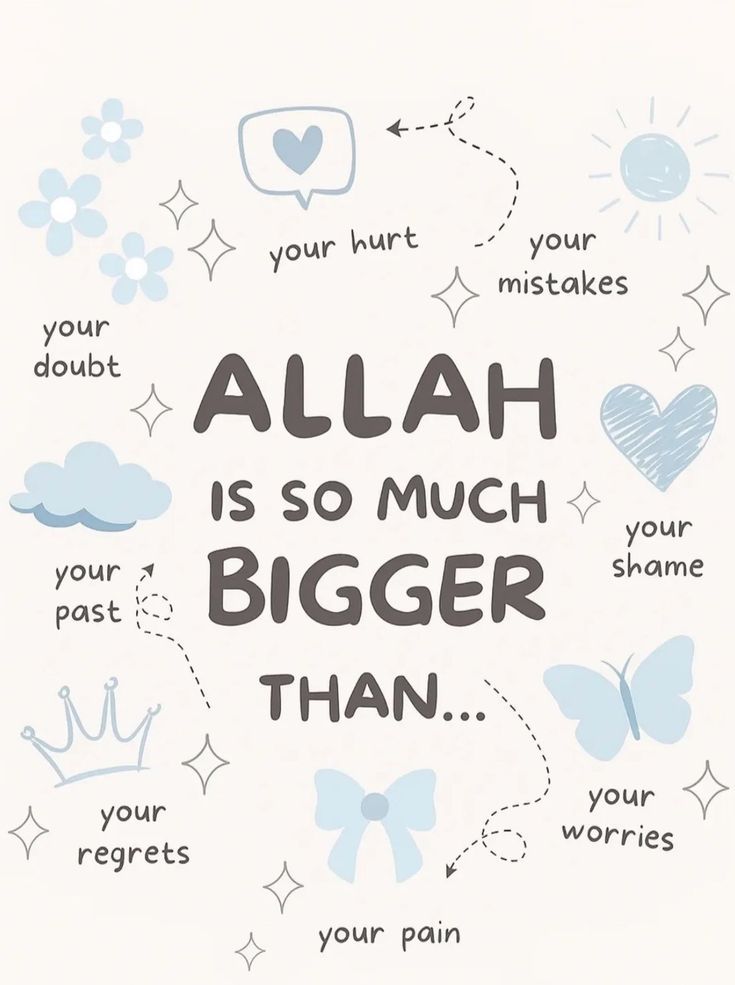 your hurt
your
mistakes
your
doubt
ALLAH
IS SO MUCH
BIGGER
THAN...
your
shame
your
past
your
worries
your
regrets
your pain